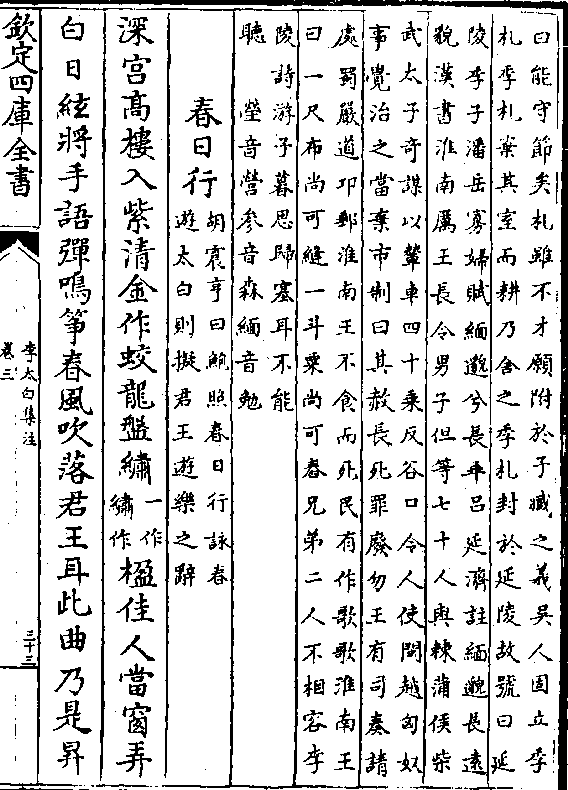 曰能守節矣札雖不才願附於子臧之義吳人固立季
札季札棄其室而耕乃舍之季札封於延陵故號曰延
陵季子潘岳寡婦賦緬邈兮長乖呂延濟註緬邈長遠
貌漢書淮南厲王長令男子但等七十人與棘蒲侯柴
武太子奇謀以輦車四十乘反谷口令人使閩越匈奴
事覺治之當棄市制曰其赦長死罪廢勿王有司奏請
處蜀嚴道卭郵淮南王不食而死民有作歌歌淮南王
曰一尺布尚可縫一斗粟尚可舂兄弟二人不相容李
陵詩游子暮思歸塞耳不能
聽 瑩音營參音森緬音勉
春日行
胡震亨曰鮑照春日行詠春
遊太白則擬君王遊樂之辭
深宫髙樓入紫清金作蛟龍盤繡一作繡作楹佳人當窗弄
白日絃將手語彈鳴筝春風吹落君王耳此曲乃是昇
欽定四庫全書
李太白集注
卷三
三十三